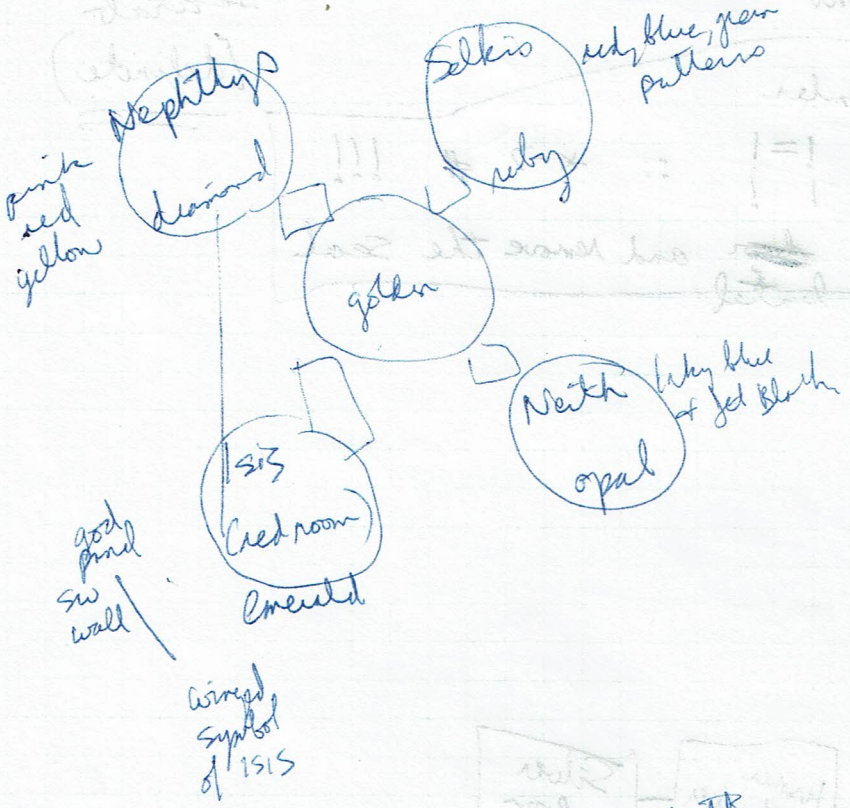 Nephthys
diamond
pink
red
yellow
Selkis
ruby
red, blue, green
patterns
golden
Neith
opal
blue
+ Jet Black
Isis
(red room)
Emerald
god
SW
wall
winged
symbol
of ISIS